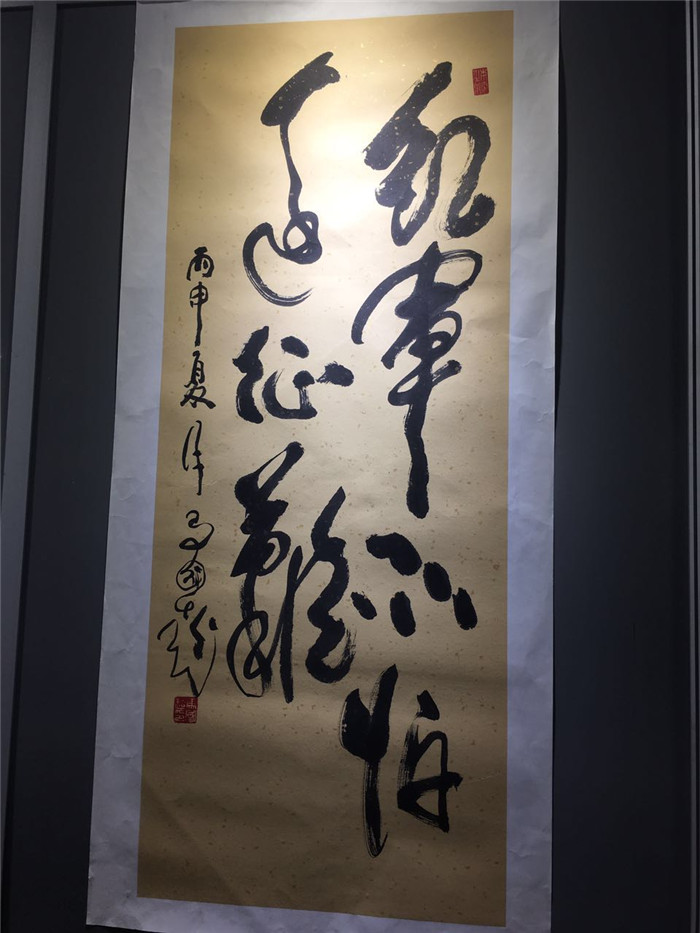 红军不怕
远征难
丙申夏月